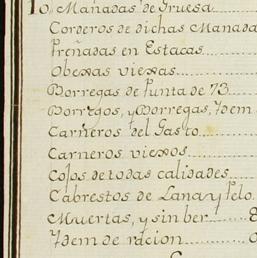 10 Mañadas de Gruesa
Corderos de dichas Manada
Preñadas en Estacas
Obexas viexas
Borregas de Punta de 73
Borregos, y Borregas, Ydem
Carneros del Gasto
Carneros viexos
Cojos de todas calidades
Cabrestos de Lana y Pelo
Muertas, y sin ber
Ydem de racion